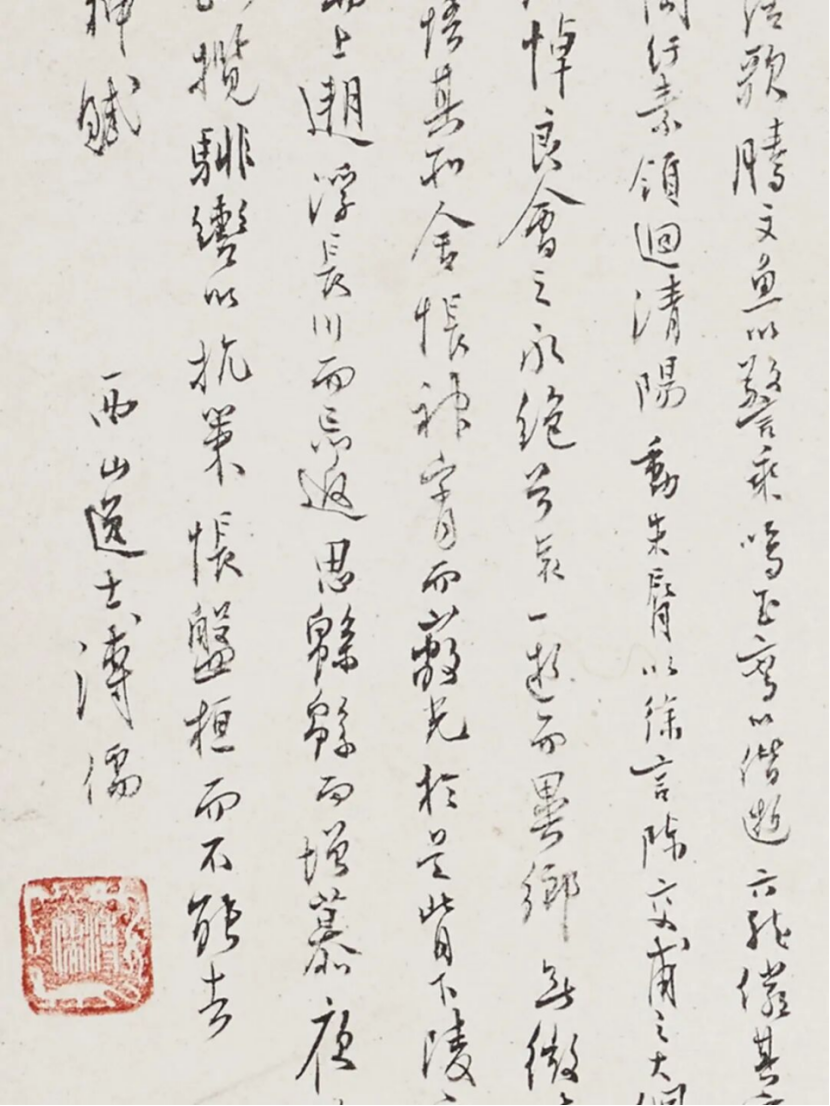 清歌騰文魚以警乘鳴玉鸞以偕逝六龍儼其
岡紆素領迴清陽動朱脣以徐言陳交甫之大綱
悼良會之永絕兮哀一逝而異鄉無微
悟其所舍悵神宵而蔽光於是背下陵
上遡浮長川而忘返思緜緜而增慕夜
攬騑轡以抗策悵盤桓而不能去
神賦
西山逸士溥儒
溥儒